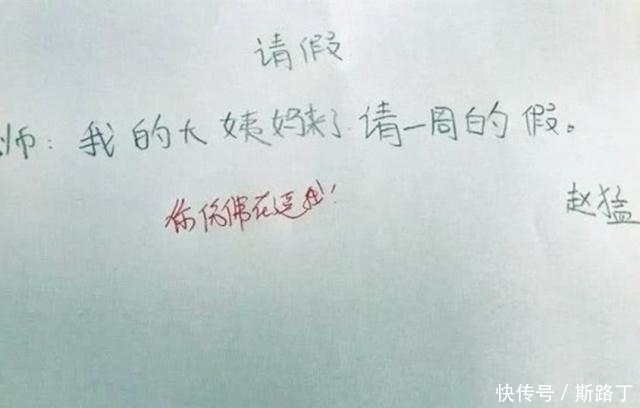 请假
师：我的大姨妈来了请一周的假。
你仿佛在逗我！
赵猛
快传号／斯路丁